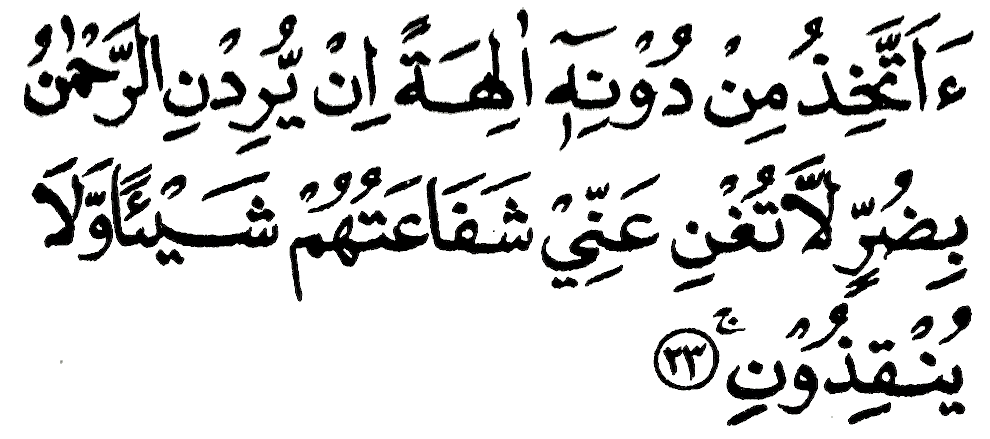 ءَاَتَّخِذُ مِنْ دُوْنِهٖۤ اٰلِهَةً اِنْ يُّرِدْنِ الرَّحْمٰنُ
بِضُرٍّ لَّا تُغْنِ عَنِّيْ شَفَاعَتُهُمْ شَيْـًٔا وَّلَا
يُنْقِذُوْنِ ۚ ﴿٢٣﴾